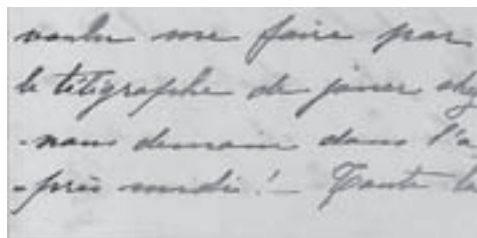 voulu me faire par
le télégraphe de jouer chez
-nous demain dans l'a
-près midi! - Toute la